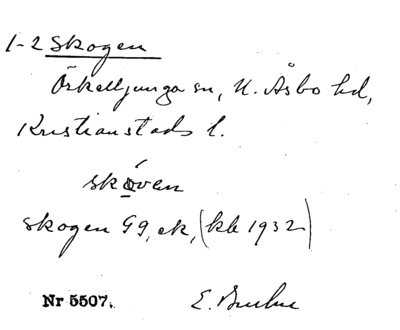 1-2 Skogen
Örkelljunga sn, N. Åsbo hd,
Kristianstads l.
skoven
skogen G9, ek, (kb 1932)
Nr 5507. E.